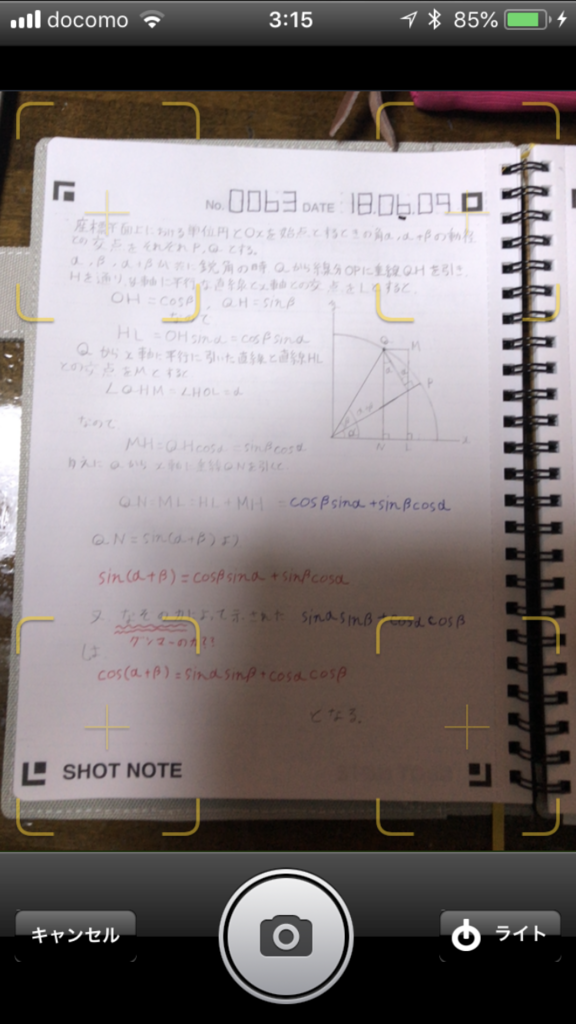 docomo 3:15 85%
No. 0063 DATE 18.06.09
座標平面上における単位円とOxを始点とするときの角α,α+βの動径
との交点をそれぞれP,Qとする。
α,β,α+βが共に鋭角の時 Qから線分OPに垂線QHを引き、
Hを通りy軸に平行な直線とx軸との交点をLとすると、
OH=cosβ, QH=sinβ
なので
HL=OHsinα=cosβsinα
Qからx軸に平行に引いた直線と直線HL
との交点をMとすると
∠QHM=∠HOL=α
なので
MH=QHcosα=sinβcosα
Q
M
P
N
L
x
ゆえにQからx軸に垂線QNを引くと
QN=ML=HL+MH =cosβsinα+sinβcosα
QN=sin(α+β)より
sin(α+β)=cosβsinα+sinβcosα
又、なぞの力によって示された sinαsinβ+cosαcosβ
グンマーの力!?
は
cos(α+β)=sinαsinβ+cosαcosβ
となる。
SHOT NOTE
キャンセル
ライト